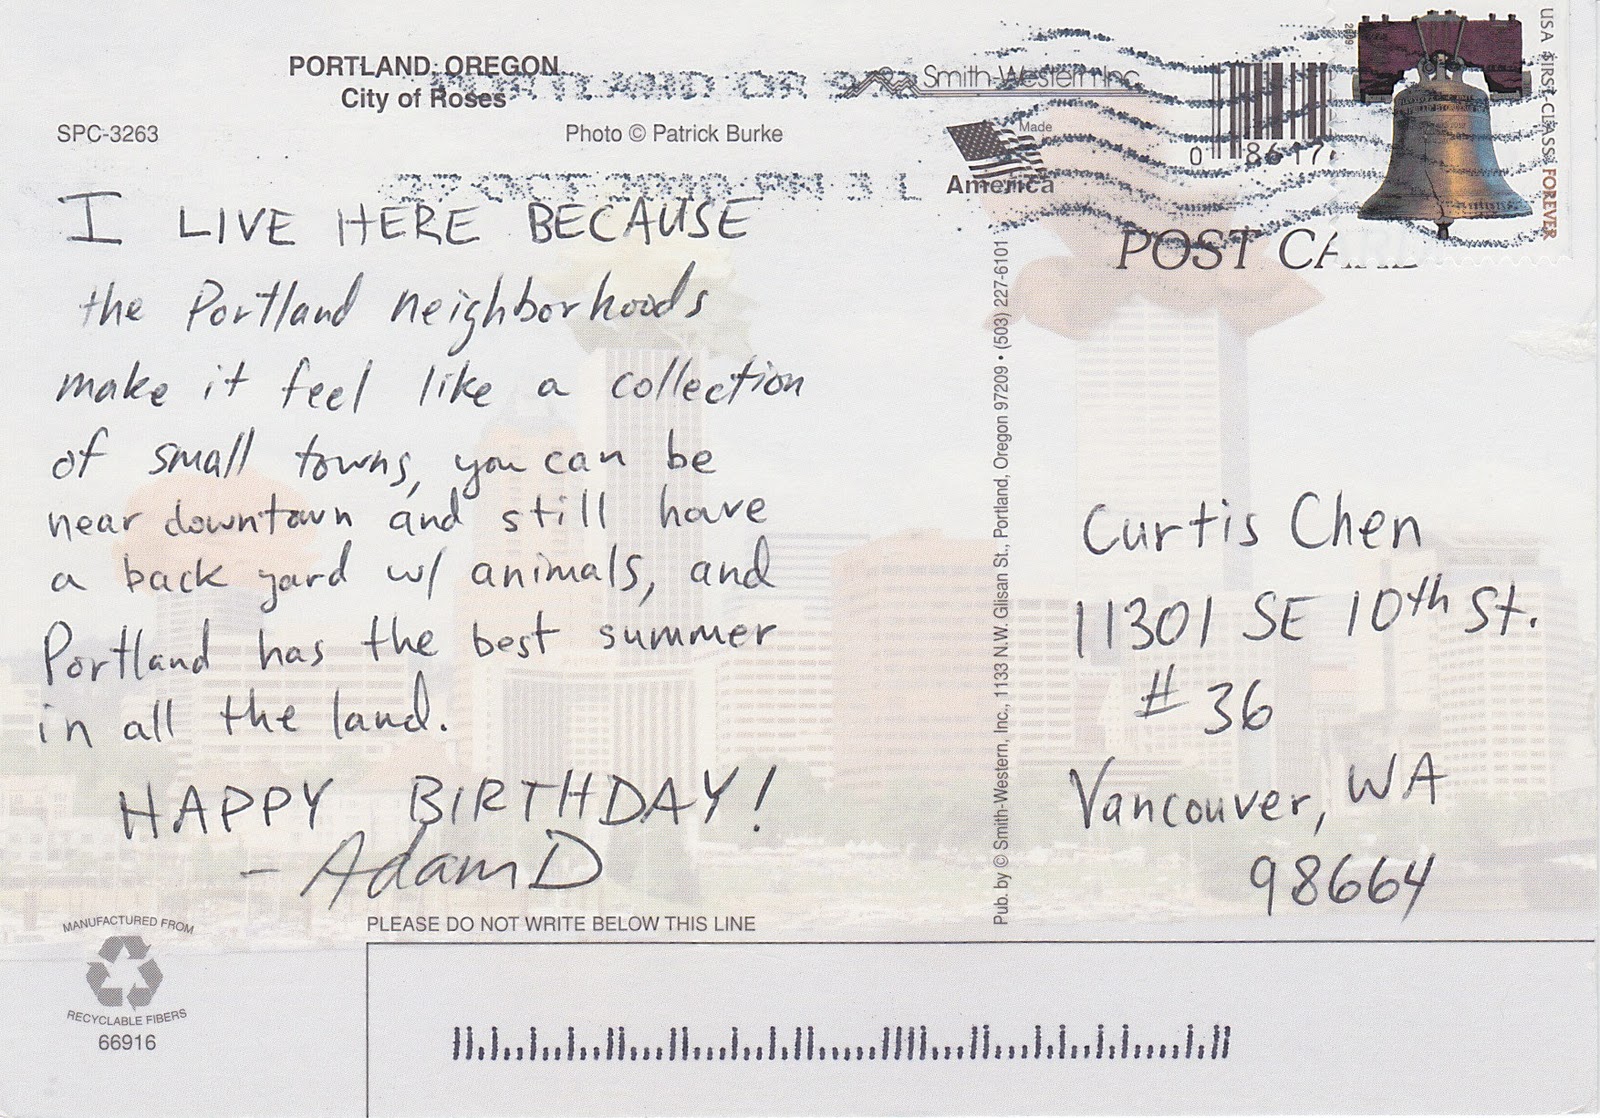 PORTLAND, OREGON
City of Roses
SPC-3263
Photo © Patrick Burke
PORTLAND OR
OCT 2010 PM 3 L
Smith-Western Inc
Made
America
0 86174
2009
USA FIRST-CLASS FOREVER
POST CARD
I LIVE HERE BECAUSE
the Portland neighborhoods
make it feel like a collection
of small towns, you can be
near downtown and still have
a back yard w/ animals, and
Portland has the best summer
in all the land.
HAPPY BIRTHDAY!
- Adam D
Pub. by © Smith-Western, Inc., 1133 N.W. Glisan St., Portland, Oregon 97209 • (503) 227-6101
Curtis Chen
11301 SE 10th St.
# 36
Vancouver, WA
98664
PLEASE DO NOT WRITE BELOW THIS LINE
MANUFACTURED FROM
RECYCLABLE FIBERS
66916